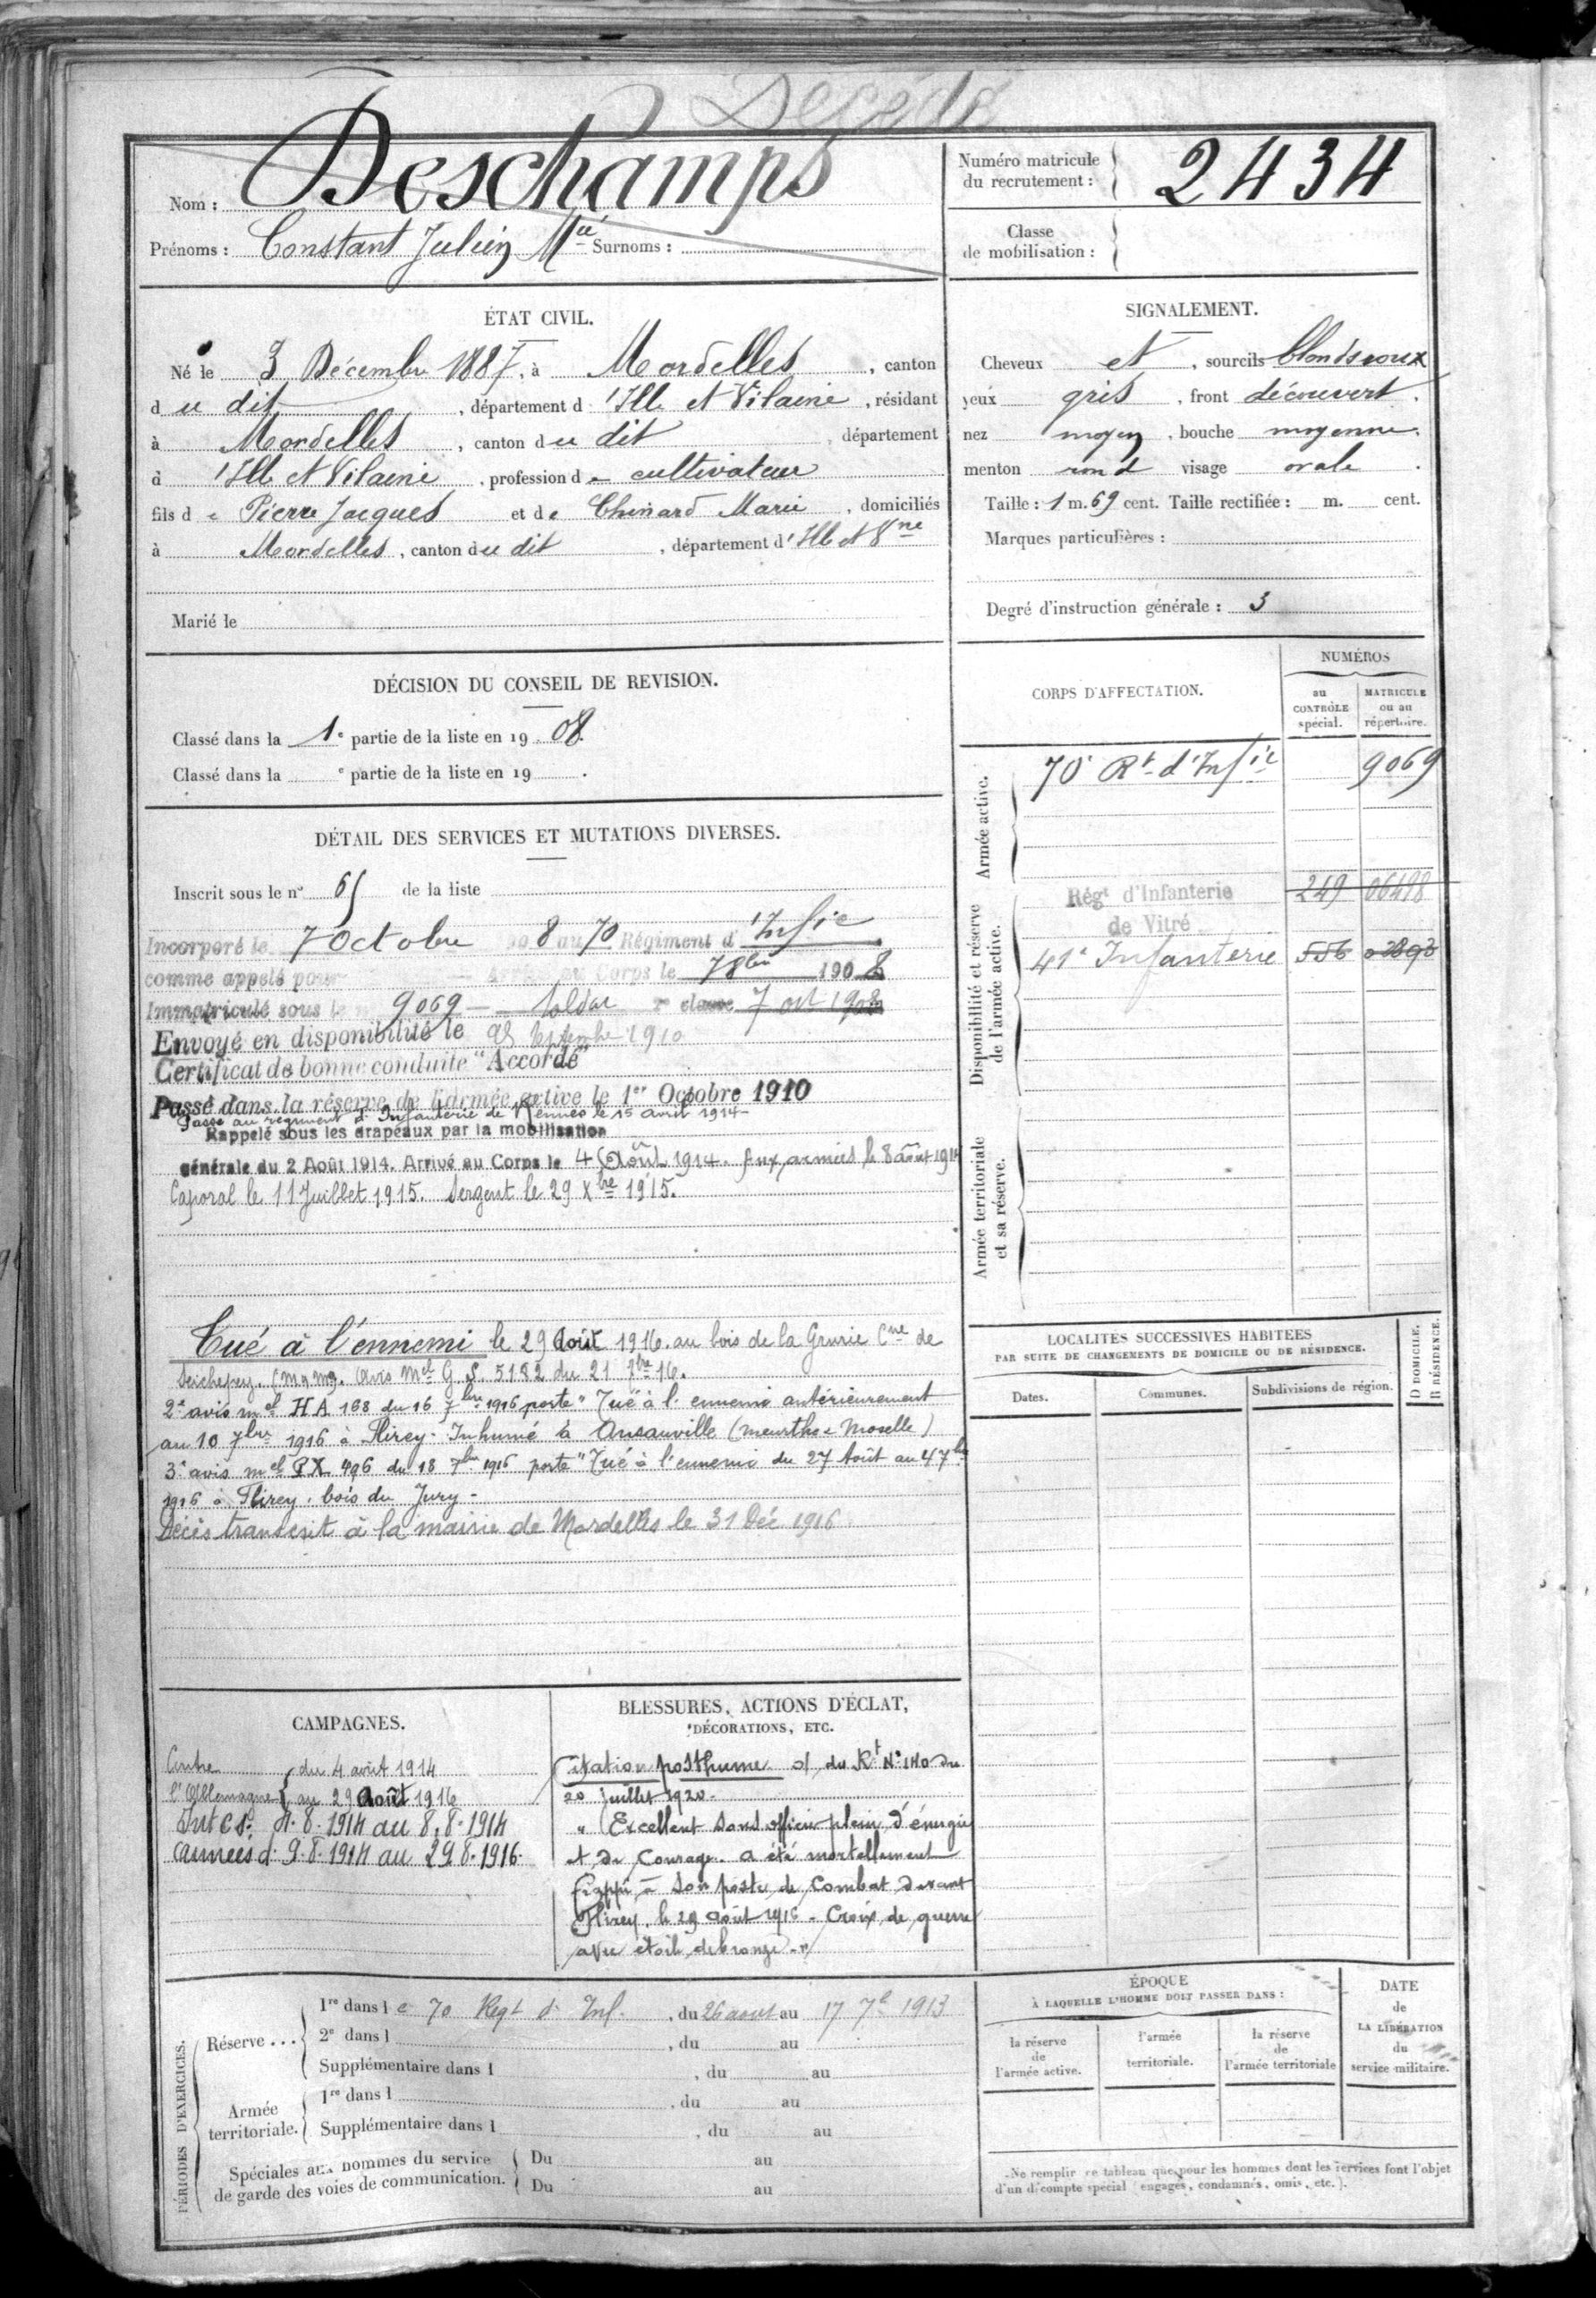 Décédé
Nom : Deschamps
Prénoms : Constant Julien Mie Surnoms :
Numéro matricule du recrutement : 2434
Classe de mobilisation :
ÉTAT CIVIL.
Né le 3 Décembre 1887, à Mordelles, canton
du dit, département d'Ille et Vilaine, résidant
à Mordelles, canton du dit, département
d'Ille et Vilaine, profession de cultivateur
fils de Pierre Jacques et de Chinard Marie, domiciliés
à Mordelles, canton du dit, département d'Ille et Vne
Marié le
SIGNALEMENT.
Cheveux et, sourcils blonds roux
yeux gris, front découvert.
nez moyen, bouche moyenne.
menton rond visage ovale.
Taille : 1 m. 69 cent. Taille rectifiée : m. cent.
Marques particulières :
Degré d'instruction générale : 3
DÉCISION DU CONSEIL DE REVISION.
Classé dans la 1e partie de la liste en 1908.
Classé dans la e partie de la liste en 19 .
DÉTAIL DES SERVICES ET MUTATIONS DIVERSES.
Inscrit sous le n° 65 de la liste
Incorporé le 7 Octobre 8 au 70 Régiment d'Infie
comme appelé pour Corps le 7 8bre 1908
Immatriculé sous le 9069 - Soldat 2e classe 7 oct 1908
Envoyé en disponibilité le 25 Septembre 1910
Certificat de bonne conduite "Accordé"
Passé dans la réserve de l'armée active le 1er Octobre 1910
Passé au régiment d'Infanterie de Rennes le 15 avril 1914-
Rappelé sous les drapeaux par la mobilisation
générale du 2 Août 1914. Arrivé au Corps le 4 Août 1914. Aux armées le 8 août 1914
Caporal le 11 Juillet 1915. Sergent le 29 Xbre 1915.
Tué à l'ennemi le 29 Août 1916. au bois de la Grurie Cne de
Seicheprey. (M et M). Avis Mel G. S. 5182 du 21 7bre 16.
2e avis mel HA 168 du 16 7bre 1916 porte "Tué à l'ennemi antérieurement
au 10 7bre 1916 à Flirey - Inhumé à Ansauville (Meurthe Moselle)
3e avis mel PX 496 du 18 7bre 1916 porte "Tué à l'ennemi du 27 Août au 4 7bre
1916 à Flirey, bois du Jury -
Décès transcrit à la mairie de Mordelles le 31 Déc 1916
CORPS D'AFFECTATION.
NUMÉROS
au CONTRÔLE spécial.
MATRICULE ou au répertoire.
Armée active.
70e Rt d'Infie 9069
Disponibilité et réserve de l'armée active.
Régt d'Infanterie de Vitré 249 06498
41e Infanterie 556
Armée territoriale et sa réserve.
LOCALITÉS SUCCESSIVES HABITÉES
PAR SUITE DE CHANGEMENTS DE DOMICILE OU DE RÉSIDENCE.
Dates. Communes. Subdivisions de région.
D DOMICILE. R RÉSIDENCE.
CAMPAGNES.
Contre l'Allemagne { du 4 août 1914
au 29 Août 1916
Int CS: 4.8.1914 au 8.8.1914
armées d: 9.8.1914 au 29.8.1916.
BLESSURES, ACTIONS D'ÉCLAT,
DÉCORATIONS, ETC.
Citation posthume o/ du Rt N° 140 du
20 juillet 1920.
" Excellent sous officier plein d'énergie
et de Courage. a été mortellement
frappé à son poste de combat devant
Flirey, le 29 août 1916 - Croix de guerre
avec étoile de bronze - "
PÉRIODES D'EXERCICES.
Réserve ...
1re dans le 70 Regt d'Inf., du 26 aout au 17 7e 1913
2e dans l , du au
Supplémentaire dans l , du au
Armée territoriale.
1re dans l , du au
Supplémentaire dans l , du au
Spéciales aux hommes du service
de garde des voies de communication.
Du au
Du au
ÉPOQUE
À LAQUELLE L'HOMME DOIT PASSER DANS :
la réserve de l'armée active.
l'armée territoriale.
la réserve de l'armée territoriale
DATE de LA LIBÉRATION du service militaire.
Ne remplir ce tableau que pour les hommes dont les services font l'objet
d'un décompte spécial (engagés, condamnés, omis, etc.).